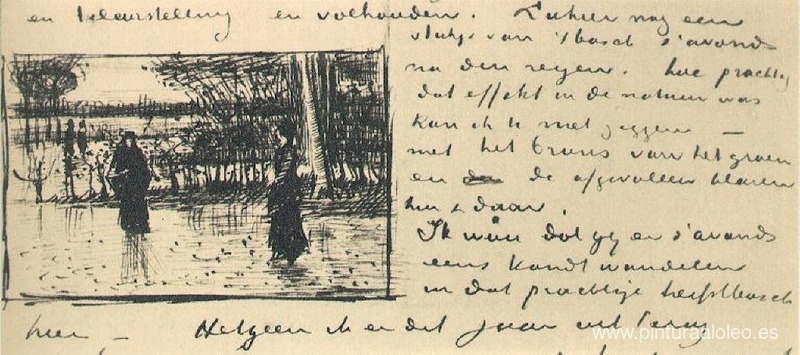 en teleurstelling en volhouden. Ziehier nog een
stukje van 't bosch s'avonds
na den regen. Hoe prachtig
dat effekt in de natuur was
kan ik U niet zeggen —
met het brons van het groen
en de afgevallen blaren
hier & daar.
Ik wou dat gij er s'avonds
eens kondt wandelen
in dat prachtige herfstbosch
hier — Hetgeen ik er dit jaar uit
www.pinturaaloleo.es